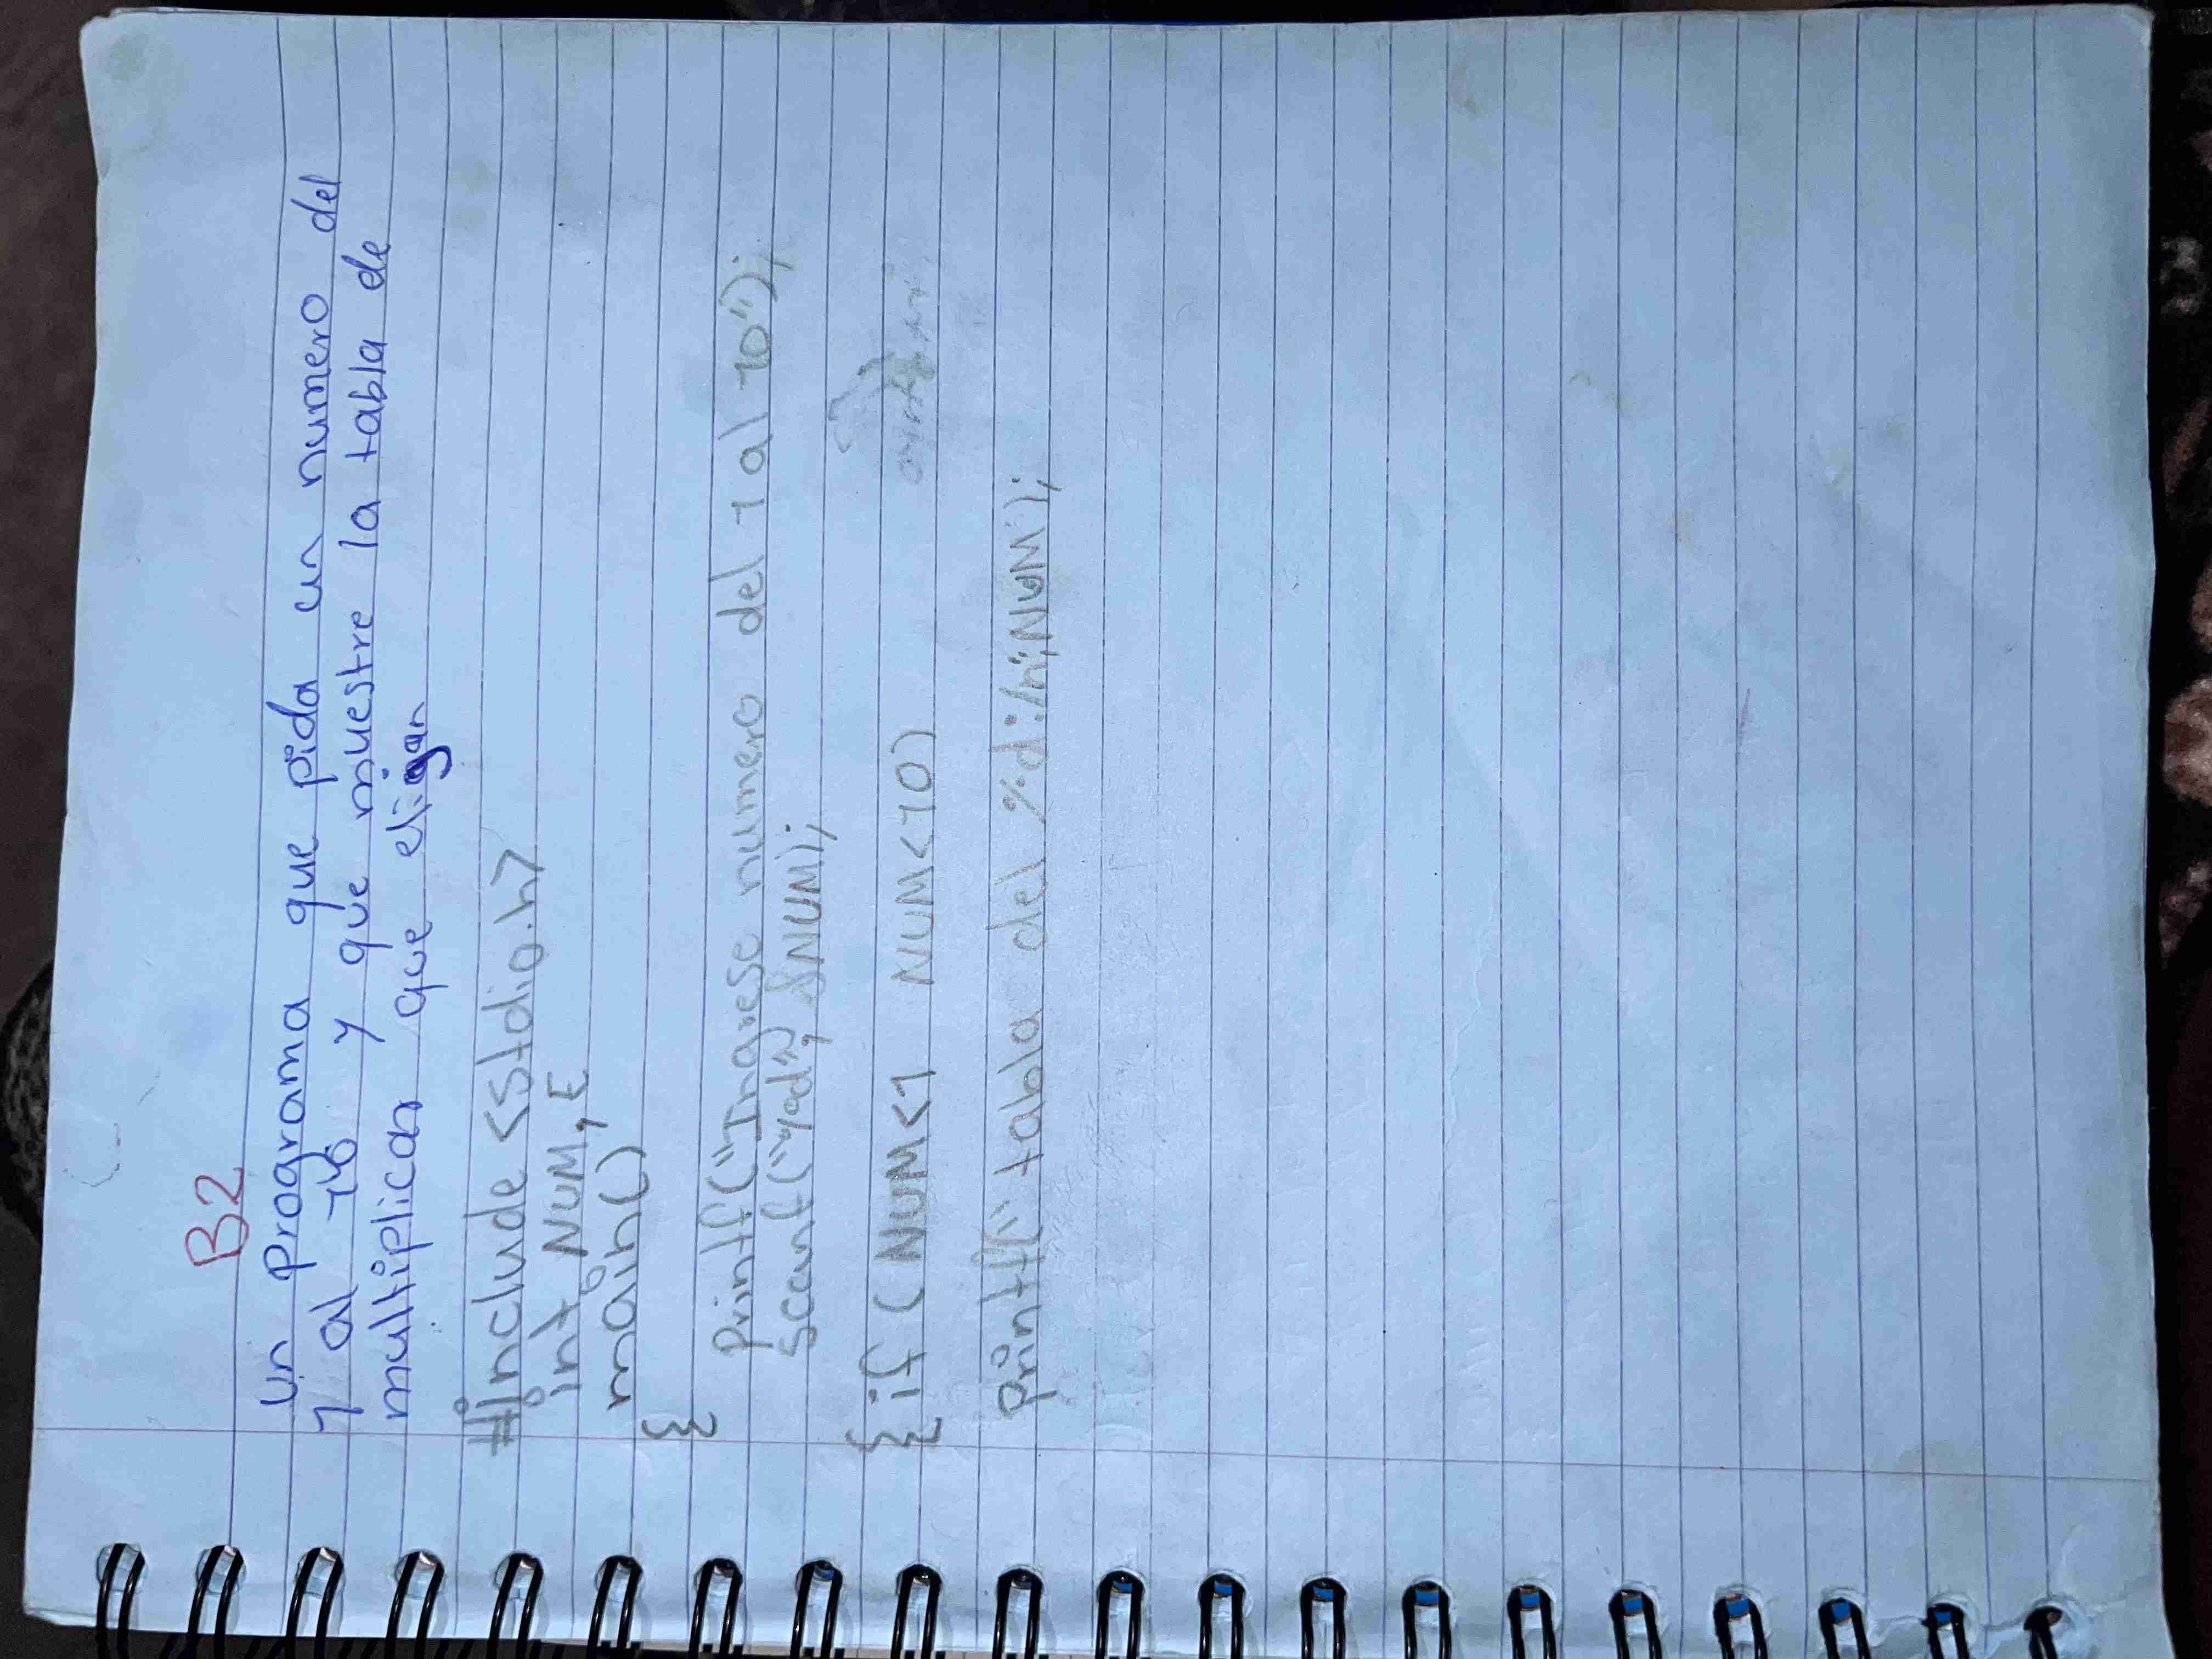 B2
un programa que pida un numero del
1 al 10 y que muestre la tabla de
multiplicar que eligan
#include <stdio.h>
int NUM, E
main()
{
printf("Ingrese numero del 1 al 10");
scanf("%d", &NUM);
{ if (NUM<1 NUM<10)
{
printf(" tabla del %d:/n",NUM);